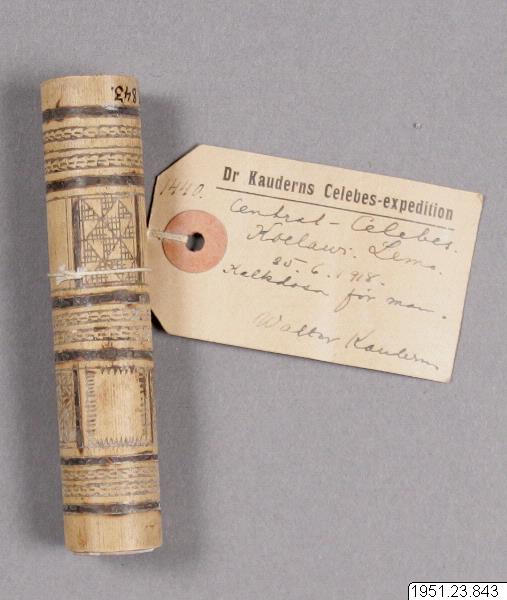 843.
1440.
Dr Kauderns Celebes-expedition
Central-Celebes.
Koelawi. Lemo.
25.6.1918.
Kalkdosa för man.
Walter Kaudern
1951.23.843